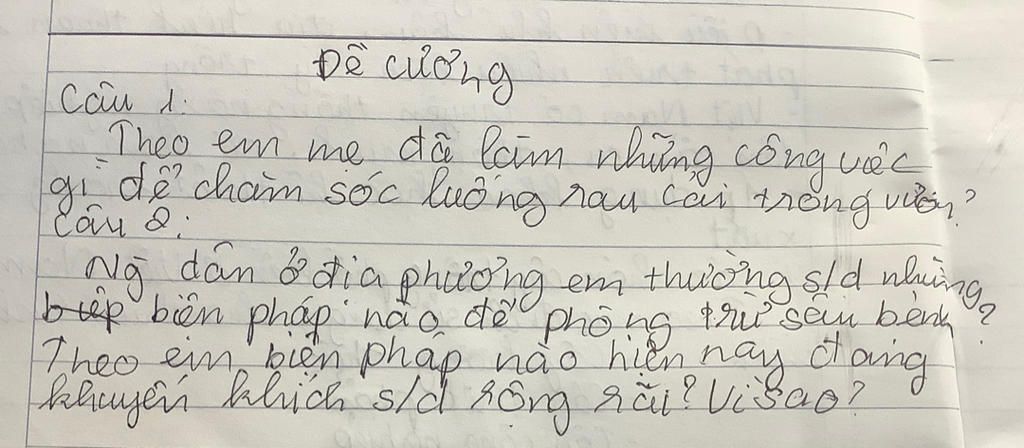 Đề cương
Câu 1:
Theo em mẹ đã làm những công việc
gì để chăm sóc luống rau cải trong vườn?
Câu 2:
Ng dân ở địa phương em thường s/d những
biện pháp nào để phòng trừ sâu bệnh?
Theo em biện pháp nào hiện nay đang
khuyến khích s/d rộng rãi? Vì sao?